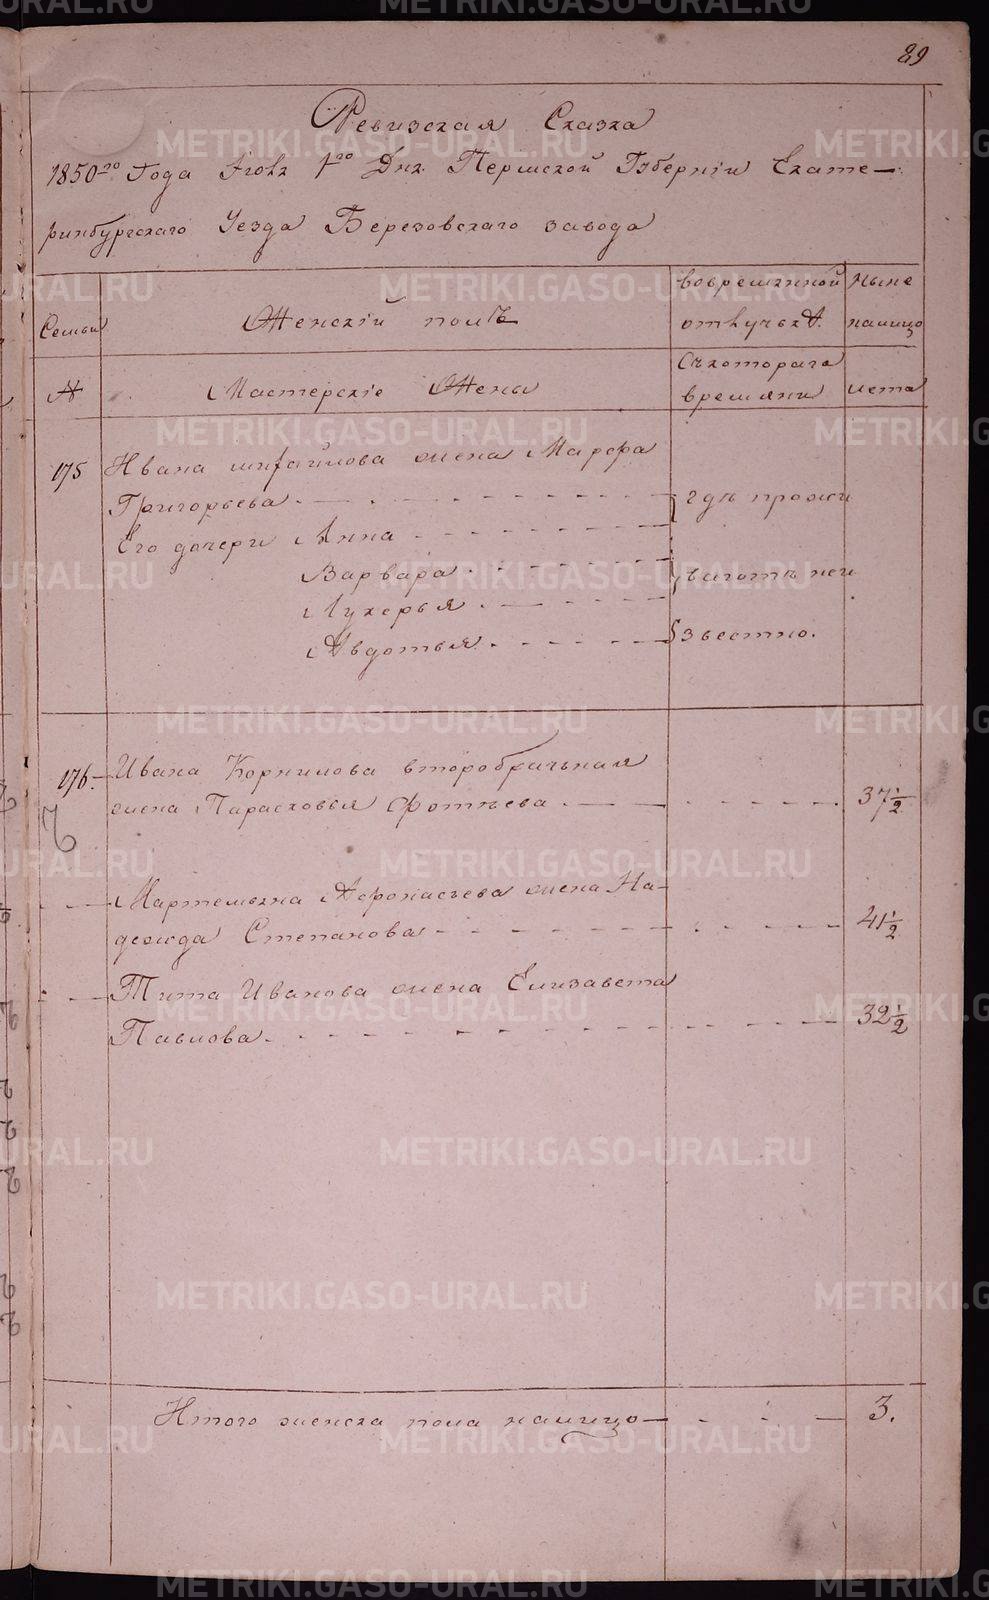 89
Ревизская Сказка
1850го Года Iюня 1го Дня Пермской Губернiи Екате-
ринбургскаго Уезда Березовскаго завода
Семьи
Женскiй полъ
вовременной
отлучьке
Ныне
налицо
№
Мастерскiе Жены
Съкотораго
времяни
лета
175
Ивана михайлова жена Марфа
Григорьева
Его дочери Анна
Варвара
Лукерья
Авдотья
где прожи
вають не и
звестно.
176.
Ивана Корнилова второбрачьная
жена Парасковья Фотеева
37 1/2
Мартемьяна Афонасьева жена На-
дежда Степанова
41 1/2
Тита Иванова жена Елизавета
Павлова
32 1/2
Итого женска пола налицо
3.
METRIKI.GASO-URAL.RU